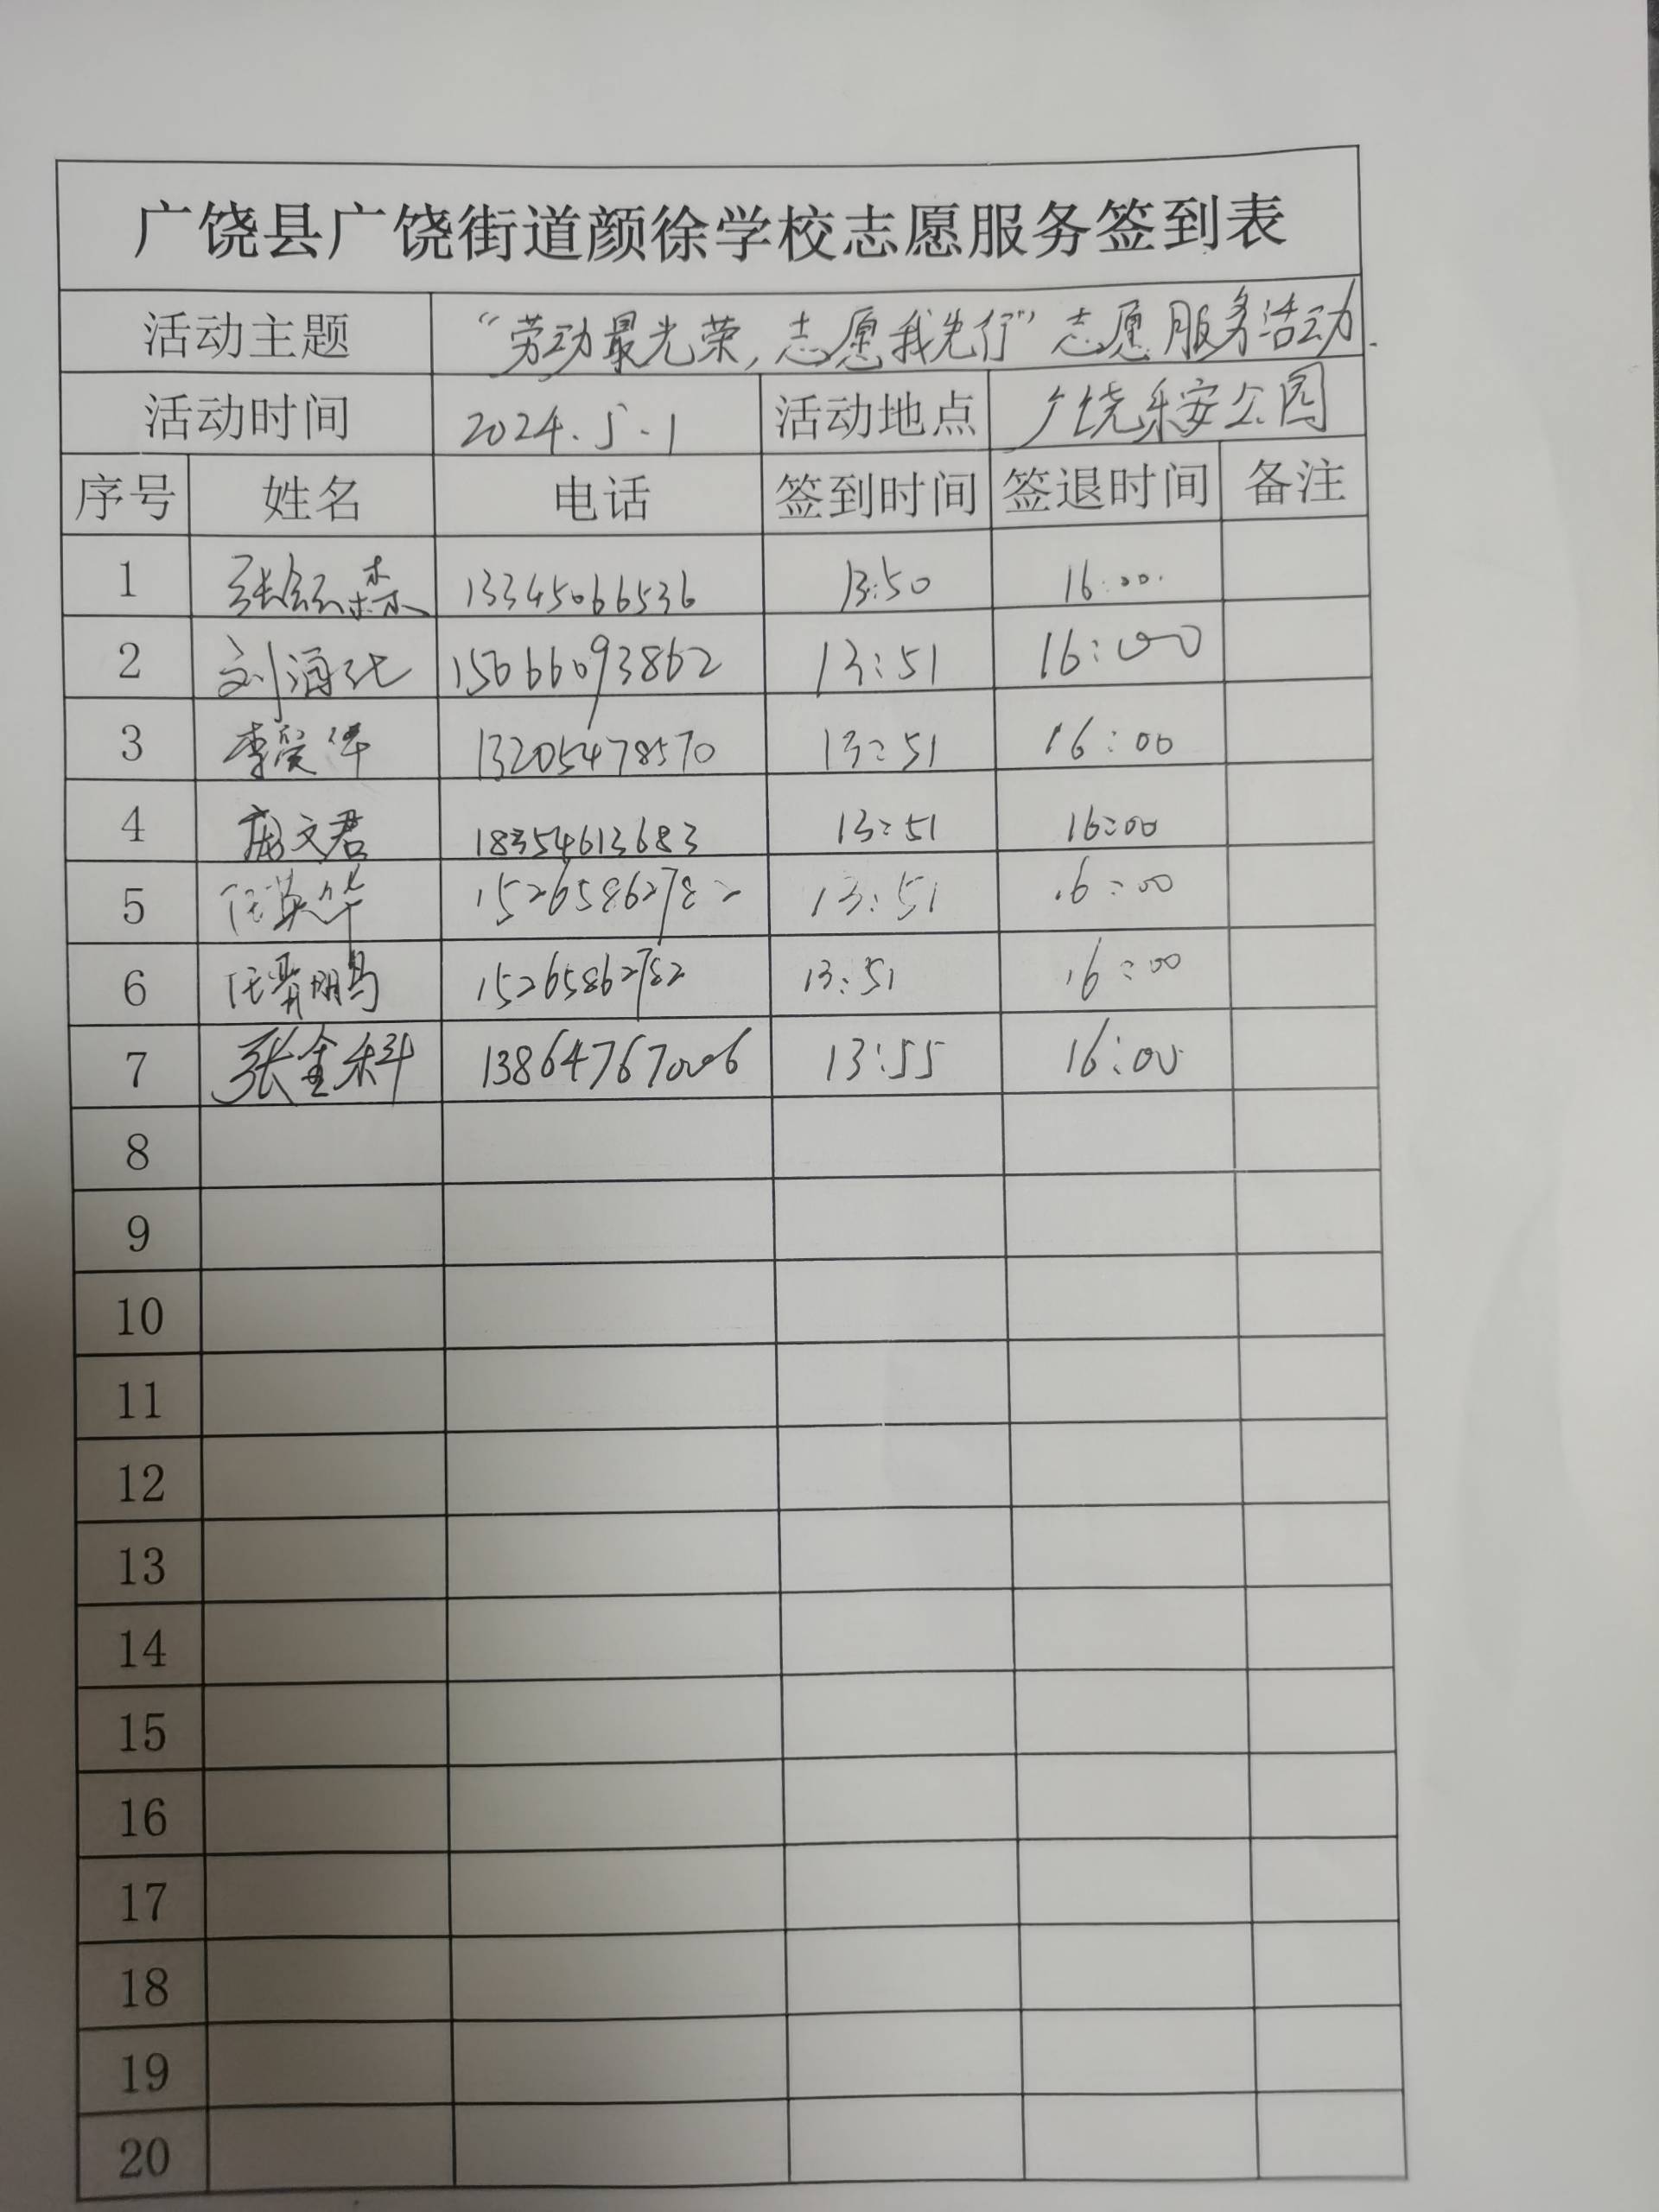 广饶县广饶街道颜徐学校志愿服务签到表
活动主题 “劳动最光荣，志愿我先行”志愿服务活动.
活动时间 2024.5.1 活动地点 广饶乐安公园
序号 姓名 电话 签到时间 签退时间 备注
1 13345066536 13:50 16:00
2 15066093862 13:51 16:00
3 13205478570 13:51 16:00
4 庞文君 18354613683 13:51 16:00
5 任英华 15265862782 13:51 16:00
6 15265862782 13:51 16:00
7 张金科 13864767006 13:55 16:00
8
9
10
11
12
13
14
15
16
17
18
19
20